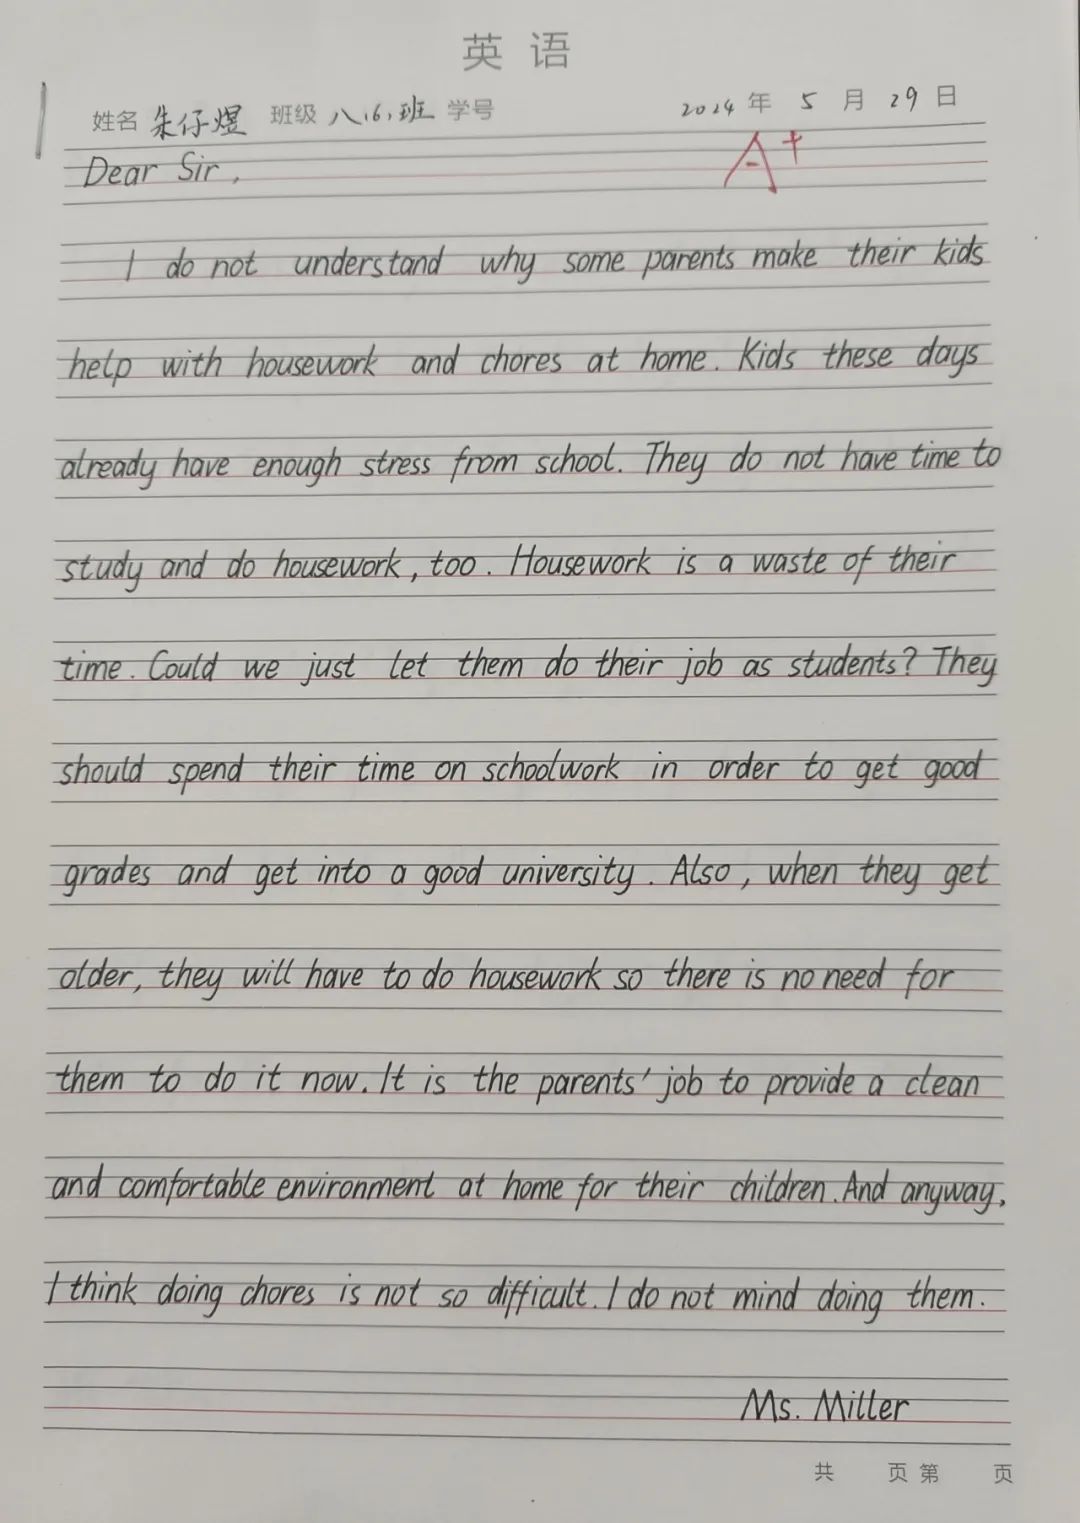 英语
姓名 朱仔煜 班级 八(6)班 学号 2024年 5月 29日
A+
Dear Sir,
I do not understand why some parents make their kids
help with housework and chores at home. Kids these days
already have enough stress from school. They do not have time to
study and do housework, too. Housework is a waste of their
time. Could we just let them do their job as students? They
should spend their time on schoolwork in order to get good
grades and get into a good university. Also, when they get
older, they will have to do housework so there is no need for
them to do it now. It is the parents' job to provide a clean
and comfortable environment at home for their children. And anyway,
I think doing chores is not so difficult. I do not mind doing them.
Ms. Miller
共 页 第 页